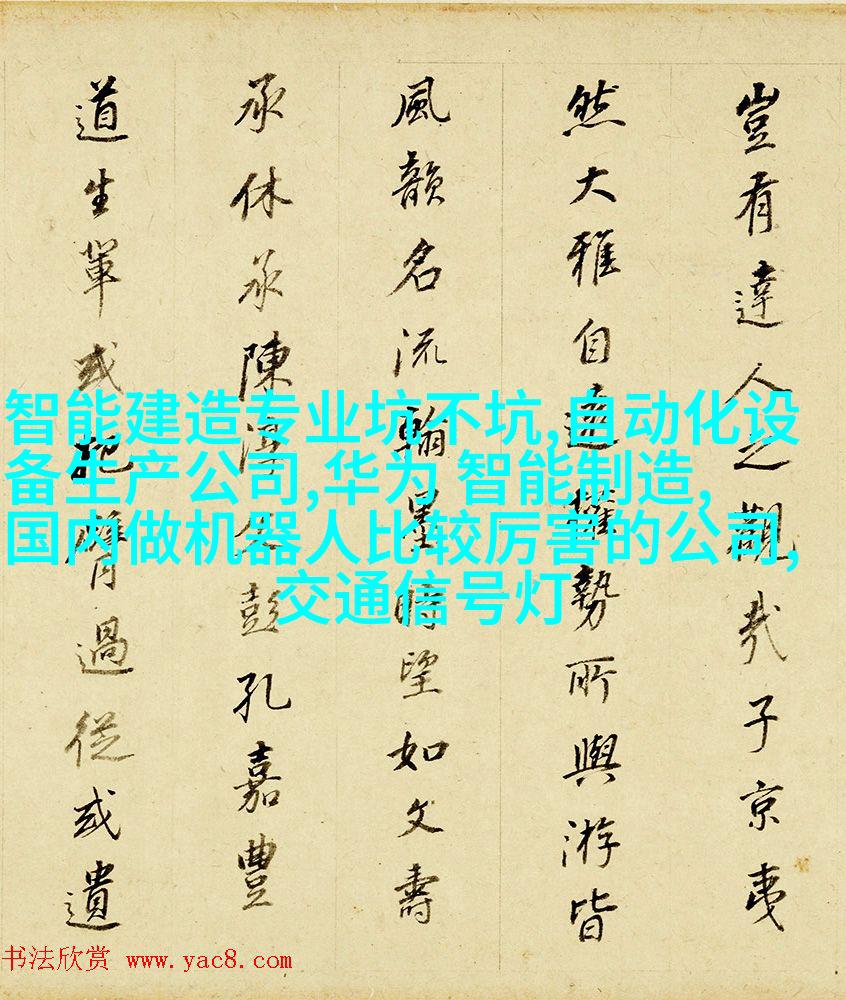 豈有達人之觀哉子京夷
然大雅自遠權勢所與游皆
風韻名流翰墨時望如文壽
承休承陳淳父彭孔嘉豊
道生輩或把臂過從或遺
智能建造专业坑不坑,自动化设
备生产公司,华为 智能制造,
国内做机器人比较厉害的公司,
交通信号灯
书法欣赏 www.yac8.com